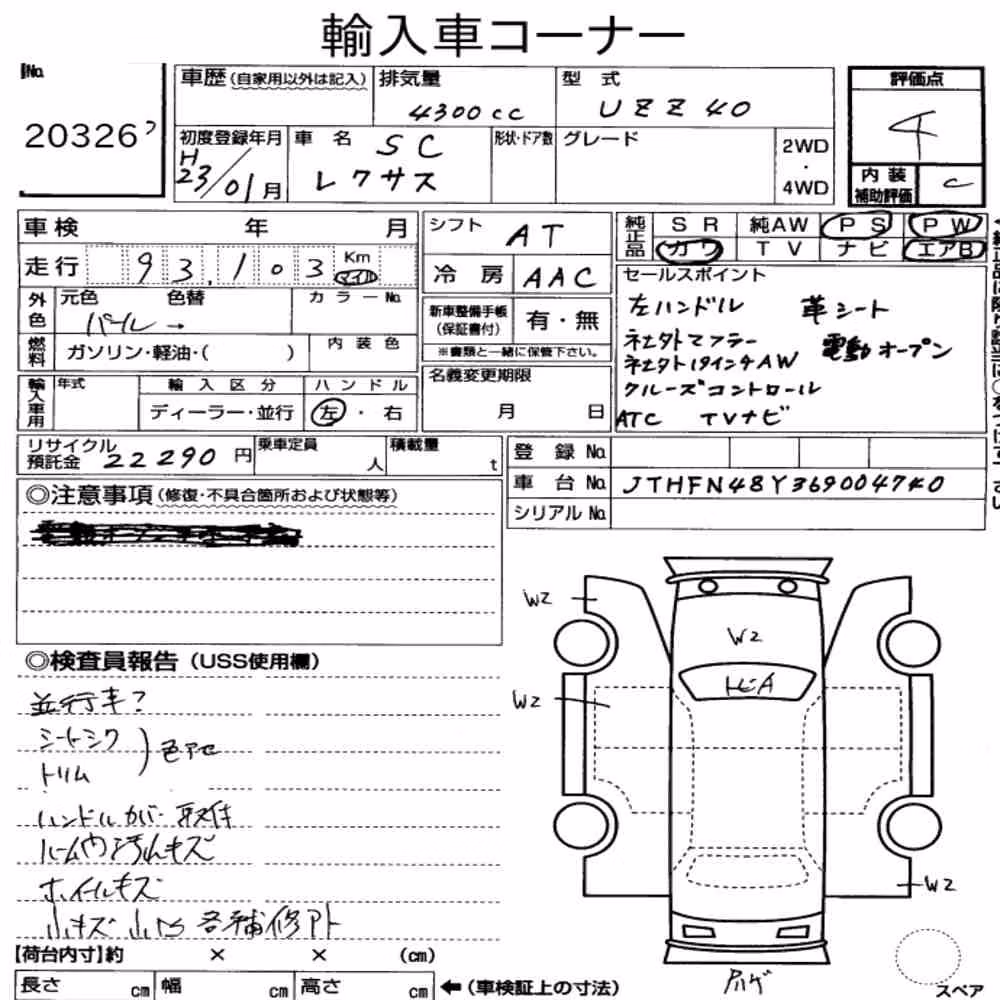 輸入車コーナー
No.
20326 フ
車歴(自家用以外は記入)
排気量
4300cc
型 式
UZZ40
評価点
4
初度登録年月
H
23/01月
車 名
SC
レクサス
形状・ドア数
グレード
2WD
・
4WD
内 装
補助評価
C
車検 年 月
走行 93,103 Km マイル
シフト AT
冷 房 AAC
純正品
SR 純AW PS PW
カワ TV ナビ エアB
セールスポイント
左ハンドル 革シート
社外マフラー
社外19インチAW 電動オープン
クルーズコントロール
ATC TVナビ
外色
元色 色替 カラーNo.
パール →
新車整備手帳
(保証書付)
有・無
※書類と一緒に保管下さい。
燃料
ガソリン・軽油・( )
内装色
輸入車用
年式
輸入区分
ハンドル
ディーラー・並行
左・右
名義変更期限
月 日
リサイクル
預託金 22290 円
乗車定員
人
積載量
t
登 録 No.
車 台 No. JTHFN48Y369004740
シリアル No.
◎注意事項(修復・不具合箇所および状態等)
◎検査員報告(USS使用欄)
並行車?
シートシワ
トリム
色アセ
ハンドルカバー取付
ルーム内汚れキズ
ホイールキズ
小キズ 小凹 各補修アト
W2
W2
W2
W2
トビA
アハゲ
【荷台内寸】約 × × (cm)
長さ cm 幅 cm 高さ cm ←(車検証上の寸法)
スペア